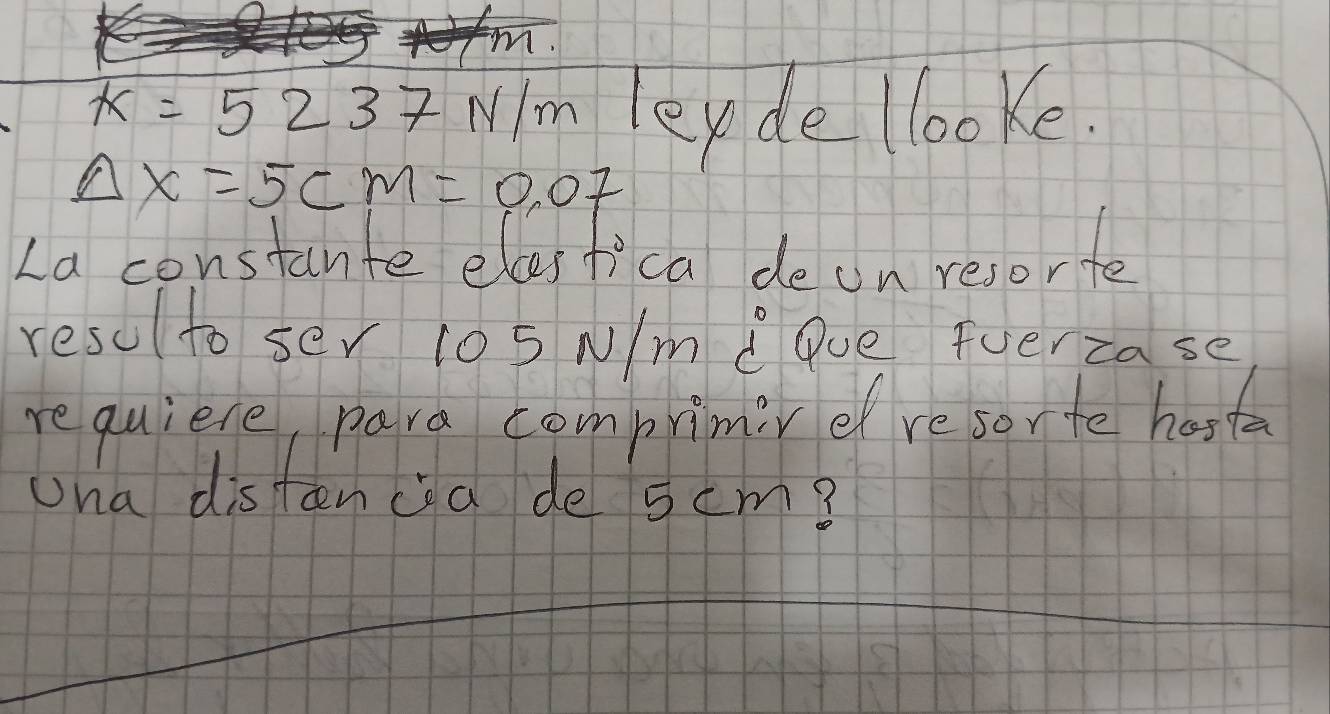 K = 5237 N/m ley de Hooke.
Δx = 5cm = 0,07
La constante elastica de un resorte
resulto ser 105 N/m ¿Que Fuerza se
requiere, para comprimir el resorte hasta
una distancia de 5cm?